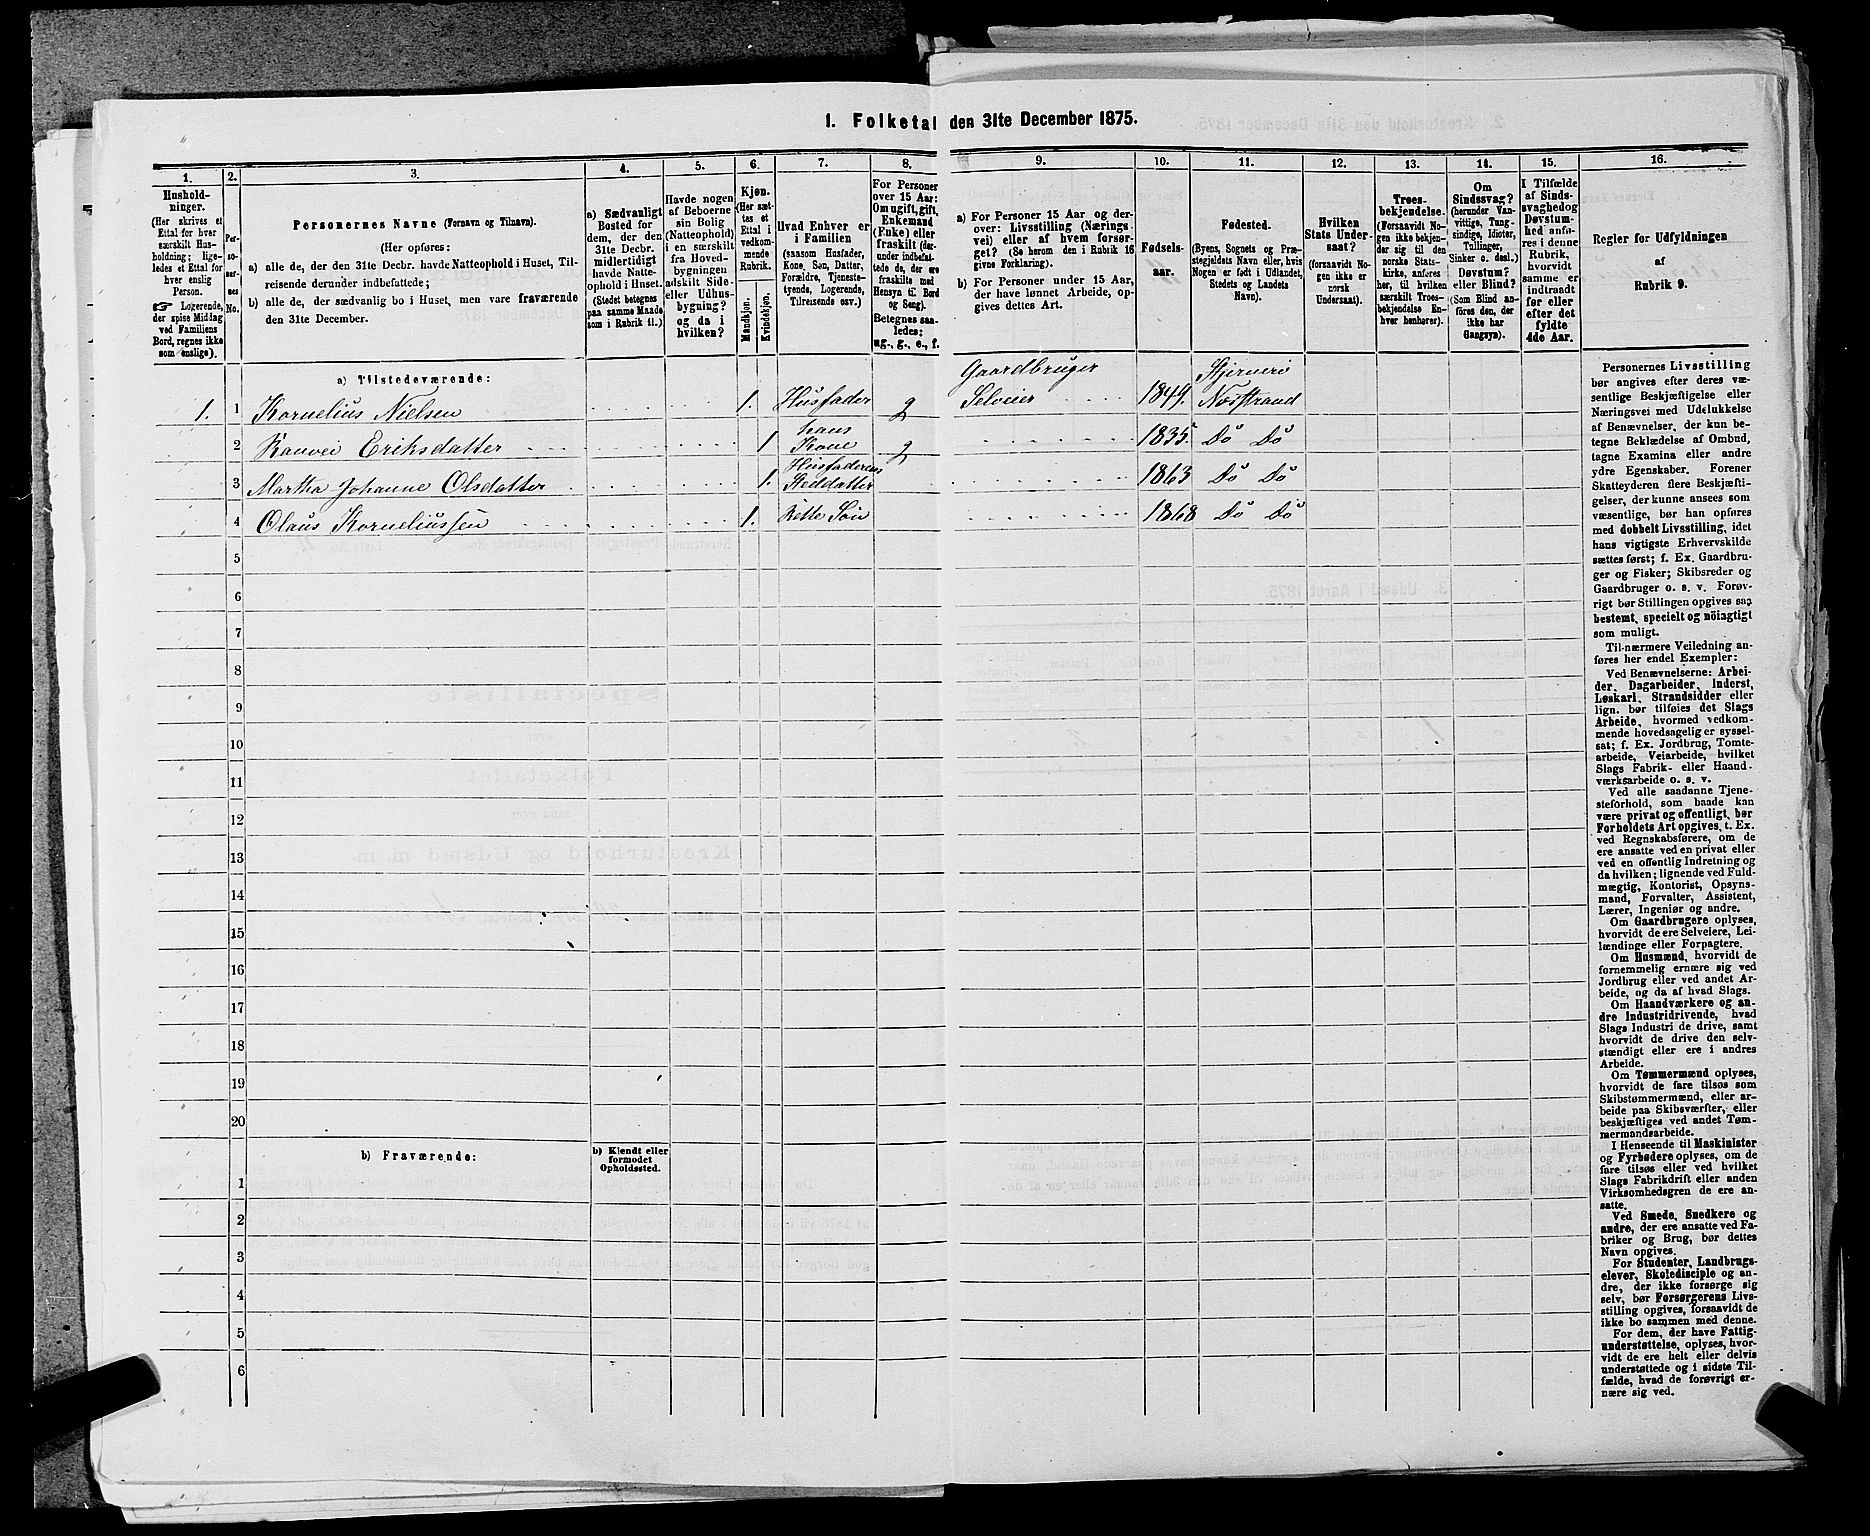 1. Folketal den 31te December 1875.
1.
2.
3.
4.
5.
6.
7.
8.
9.
10.
11.
12.
13.
14.
15.
16.
Hushold-
ninger.
(Her skrives et
Ettal for hver
særskilt Hus-
holdning; lige-
ledes et Ettal for
hver enslig
Person.
☞ Logerende,
der spise Middag
ved Familiens
Bord, regnes ikke
som enslige).
Per-
so-
ner-
nes
No.
Personernes Navne (Fornavn og Tilnavn).
(Her opføres:
a) alle de, der den 31te Decbr. havde Natteophold i Huset, Til-
reisende derunder indbefattede;
b) alle de, der sædvanlig bo i Huset, men vare fraværende
den 31te December.
a) Sædvanligt
Bosted for
dem, der den
31te Decbr.
midlertidigt
havde Natte-
ophold i Huset.
(Stedet betegnes
paa samme Maade
som i Rubrik 11.)
Havde nogen
af Beboerne
sin Bolig
(Natteophold)
i en særskilt
fra Hoved-
bygningen
adskilt Side-
eller Udhus-
bygning?
og da i
hvilken?
Kjøn.
(Her sæt-
tes et
Ettal i
vedkom-
mende
Rubrik.
Mandkjøn.
Kvindekjøn.
Hvad Enhver er
i Familien
(saasom Husfader,
Kone, Søn, Datter,
Forældre, Tjeneste-
tyende, Logerende,
Tilreisende osv.)
For Personer
over 15 Aar:
Om ugift, gift,
Enkemand
(Enke) eller
fraskilt (der-
under indbefat-
tede de, der ere
fraskilte med
Hensyn til Bord
og Seng).
Betegnes saa-
ledes:
ug., g., e., f.
a) For Personer 15 Aar og der-
over: Livsstilling (Nærings-
vei) eller af hvem forsør-
get? (Se herom den i Rubrik 16
givne Forklaring).
b) For Personer under 15 Aar,
der have lønnet Arbeide, op-
gives dettes Art.
Fødsels-
aar.
Fødested.
(Byens, Sognets og Præ-
stegjeldets Navn eller, hvis
Nogen er født i Udlandet,
Stedets og Landets
Navn).
Hvilken
Stats Under-
saat?
(forsaavidt No-
gen ikke er
norsk
Undersaat).
Troes-
bekjendelse.
(Forsaavidt No-
gen ikke bekjen-
der sig til den
norske Stats-
kirke, anføres
her, til hvilken
særskilt Troes-
bekjendelse En-
hver henhører).
Om
Sindssvag?
(herunder Van-
vittige, Tung-
sindige, Idioter,
Tullinger,
Sinker o. desl.)
Døvstum?
eller Blind?
(Som Blind an-
føres den, der
ikke har
Gangsyn).
I Tilfælde
af Sinds-
svaghed og
Døvstum-
hed anfø-
res i denne
Rubrik,
hvorvidt
samme er
indtraadt
før eller
efter det
fyldte
4de Aar.
Regler for Udfyldningen
af
Rubrik 9.
a) Tilstedeværende:
1. 1 Kornelius Nielsen 1. Husfader g Gaardbruger Selveier 1849. Stjernerö Næsstrand
2 Ranvei Eriksdatter 1 hans Kone g 1835. Do Do
3 Martha Johanne Olsdatter 1. Husfaderens Steddatter 1863 Do Do
4 Olaus Korneliussen 1. Rette Søn 1868 Do Do
5
6
7
8
9
10
11
12
13
14
15
16
17
18
19
20
b) Fraværende:
b) Kjendt eller
formodet
Opholdssted.
1
2
3
4
5
6
Personernes Livsstilling
bør angives efter deres væ-
sentlige Beskjæftigelse eller
Næringsvei med Udelukkelse
af Benævnelser, der kun be-
tegne Beklædelse af Ombud,
tagne Examina eller andre
ydre Egenskaber. Forener
Skatteyderen flere Beskjæfti-
gelser, der kunne ansees som
væsentlige, bør han opføres
med dobbelt Livsstilling, idet
hans vigtigste Erhvervskilde
sættes først; f. Ex. Gaardbru-
ger og Fisker; Skibsreder og
Gaardbruger o. s. v. Forøv-
rigt bør Stillingen opgives saa
bestemt, specielt og nöiagtigt
som muligt.
Til nærmere Veiledning an-
føres her endel Exempler:
Ved Benævnelserne: Arbei-
der, Dagarbeider, Inderst,
Løskarl, Strandsidder eller
lign. bør tilføies det Slags
Arbeide, hvormed vedkom-
mende hovedsagelig er syssel-
sat; f. Ex. Jordbrug, Tomte-
arbeide, Veiarbeide, hvilket
Slags Fabrik- eller Haand-
værksarbeide o. s. v.
Ved alle saadanne Tjene-
steforhold, som baade kan
være privat og offentligt, bør
Forholdets Art opgives, t. Ex.
ved Regnskabsførere, om de
ere ansatte ved en privat eller
ved en offentlig Indretning og
da hvilken; lignende ved Fuld-
mægtig, Kontorist, Opsyns-
mand, Forvalter, Assistent,
Lærer, Ingeniør og andre.
Om Gaardbrugere oplyses,
hvorvidt de ere Selveiere, Lei-
lændinge eller Forpagtere.
Om Husmænd, hvorvidt de
fornemmelig ernære sig ved
Jordbrug eller ved andet Ar-
beide, og da af hvad Slags.
Om Haandværkere og an-
dre Industridrivende, hvad
Slags Industri de drive, samt
hvorvidt de drive den selv-
stændigt eller ere i andres
Arbeide.
Om Tømmermænd oplyses,
hvorvidt de fare tilsøs som
Skibstømmermænd, eller ar-
beide paa Skibsværfter, eller
beskjæftiges ved andet Tøm-
mermandsarbeide.
I Henseende til Maskinister
og Fyrbødere oplyses, om de
fare tilsøs eller ved hvilket
Slags Fabrikdrift eller anden
Virksomhedsgren de ere an-
satte.
Ved Smede, Snedkere og
andre, der ere ansatte ved Fa-
briker og Brug, bør dettes
Navn opgives.
For Studenter, Landbrugs-
elever, Skoledisciple og an-
dre, der ikke forsørge sig
selv, bør Forsørgerens Livs-
stilling opgives, forsaavidt de
ikke bo sammen med denne.
For dem, der have Fattig-
understøttelse, oplyses, hvor-
vidt de ere helt eller delvis
understøttede og i sidste Til-
fælde, hvad de forøvrigt er-
nære sig ved.